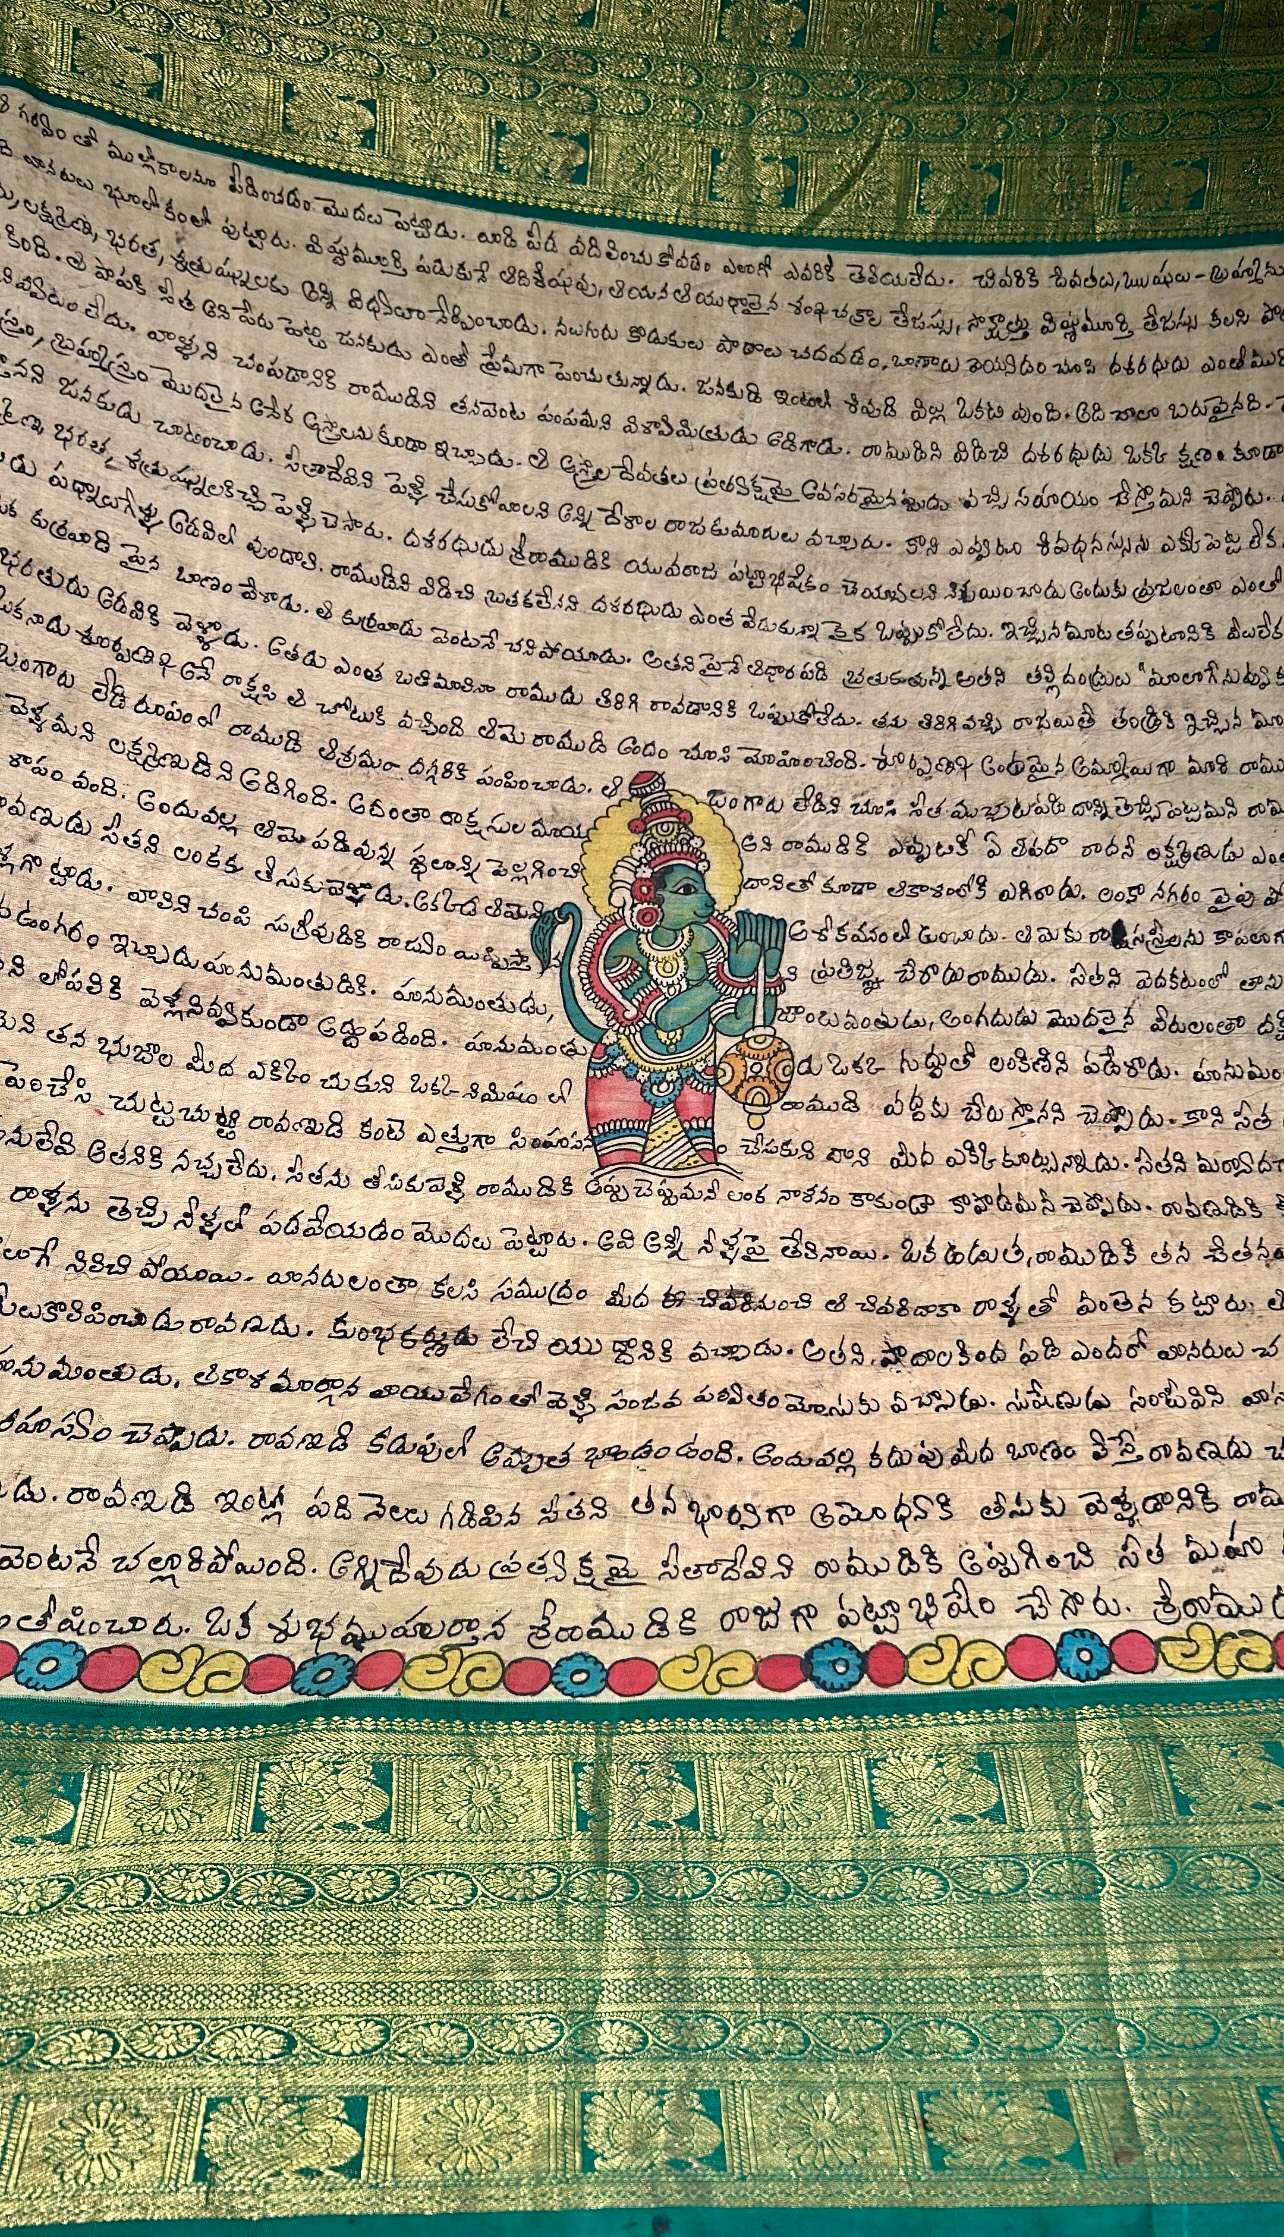 గర్వం తో ముల్లోకాలనూ పీడించడం మొదలు పెట్టాడు. వాడి పీడ వదిలించుకోవడం ఎలాగో ఎవరికీ తెలియలేదు. చివరికి దేవతలు, ఋషులు - బ్రహ్మను
వానరులు భూలోకంలో పుట్టారు. విష్ణుమూర్తి పడుకునే ఆదిశేషువు, ఆయన ఆయుధాలైన శంఖచక్రాల తేజస్సు, సాక్షాత్తు విష్ణుమూర్తి తేజస్సు కలసి
లక్ష్మణ, భరత, శత్రుఘ్నులకు అన్ని విద్యలూ నేర్పించాడు. నలుగురు కొడుకులు పాఠాలు చదవడం, బాణాలు వేయడం చూసి దశరథుడు ఎంతో
కింది. ఆ పాపకి సీత అని పేరు పెట్టి జనకుడు ఎంతో ప్రేమగా పెంచుతున్నాడు. జనకుడి ఇంటిలో శివుడి విల్లు ఒకటి వుంది. అది చాలా బరువైనది.
లేదు. వాళ్ళని చంపడానికి రాముడిని తనవెంట పంపమని విశ్వామిత్రుడు అడిగాడు. రాముడిని విడిచి దశరథుడు ఒక్క క్షణం కూడా
బ్రహ్మాస్త్రం మొదలైన అనేక అస్త్రాలను కూడా ఇచ్చాడు. ఆ అస్త్రాల దేవతలు ప్రత్యక్షమై అవసరమైనప్పుడు వచ్చి సహాయం చేస్తామని చెప్పారు.
జనకుడు చాటించాడు. సీతాదేవిని పెళ్ళి చేసుకోవాలని అన్ని దేశాల రాజకుమారులు వచ్చారు. కాని ఎవ్వరూ శివధనస్సును ఎక్కుపెట్ట లేక
భరత, శత్రుఘ్నులకిచ్చి పెళ్ళి చేసారు. దశరథుడు శ్రీరాముడికి యువరాజ పట్టాభిషేకం చేయాలని నిశ్చయించాడు అందుకు ప్రజలంతా ఎంతో
పధ్నాలుగేళ్ళు అడవిలో వుండాలి. రాముడిని విడిచి బ్రతకలేనని దశరథుడు ఎంత వేడుకున్నా కైక ఒప్పుకోలేదు. ఇచ్చిన మాట తప్పటానికి వీలులేక
కుర్రవాడి మైన బాణం వేశాడు. ఆ కుర్రవాడు వెంటనే చనిపోయాడు. అతని పైనే ఆధారపడి బ్రతుకుతున్న అతని తల్లిదండ్రులు "మాలాగే నువ్వు
భరతుడు అడవికి వెళ్ళాడు. అతడు ఎంత బతిమాలినా రాముడు తిరిగి రావడానికి ఒప్పుకోలేదు. తను తిరిగి వచ్చి రాజయితే తండ్రికి ఇచ్చిన
ఒకనాడు శూర్పణఖ అనే రాక్షసి ఆ చోటుకి వచ్చింది ఆమె రాముడి అందం చూసి మోహించింది. శూర్పణఖ అందమైన అమ్మాయిగా మారి
బంగారు లేడి రూపంలో రాముడి ఆశ్రమం దగ్గరికి పంపించాడు. ఆ బంగారు లేడిని చూసి సీత ముచ్చటపడి దాన్ని తెచ్చిపెట్టమని
వెళ్ళమని లక్ష్మణుడిని అడిగింది. అదంతా రాక్షసుల మాయ అని రాముడికి ఎప్పటికీ ఏ ఆపదా రాదనీ లక్ష్మణుడు
శాపం వుంది. అందువల్ల ఆమె పడివున్న స్థలాన్ని పెల్లగించి దానితో కూడా ఆకాశంలోకి ఎగిరాడు. లంకా నగరం వైపు
సీతని లంకకు తీసుకువెళ్ళాడు. అక్కడ ఆమెని అశోకవనంలో ఉంచాడు. ఆమెకు రాక్షసస్త్రీలను కాపలాగా
గొట్టాడు. వాలిని చంపి సుగ్రీవుడికి రాజ్యం యిప్పిస్తానని ప్రతిజ్ఞ చేశాడు రాముడు. సీతని వెదకటంలో
ఉంగరం ఇచ్చాడు హనుమంతుడికి. హనుమంతుడు, జాంబవంతుడు, అంగదుడు మొదలైన వీరులంతా
లోపలికి వెళ్లనివ్వకుండా అడ్డుపడింది. హనుమంతుడు ఒకే ఒక గుద్దుతో లంకిణిని పడేశాడు.
తన భుజాల మీద ఎక్కించుకుని ఒకే ఒక నిమిషం లో రాముడి వద్దకు చేరుస్తానని చెప్పాడు. కాని సీత
పెంచేసి చుట్టచుట్టి రావణుడి కంటె ఎత్తుగా సింహాసనం చేసుకుని దాని మీద ఎక్కికూర్చున్నాడు. సీతని
అతనికి నచ్చలేదు. సీతను తీసుకువెళ్ళి రాముడికి అప్పచెప్పమనీ లంక నాశనం కాకుండా కాపాడమనీ చెప్పాడు. రావణుడికి
రాళ్ళను తెచ్చి నీళ్ళలో పడవేయడం మొదలు పెట్టారు. అవి అన్నీ నీళ్ళపై తేలినాయి. ఒక ఉడుత, రాముడికి తన
నిలిచి పోయాయి. వానరులంతా కలసి సముద్రం మీద ఈ చివరినుంచి ఆ చివరిదాకా రాళ్ళతో వంతెన కట్టారు.
మేలుకొలిపించాడు రావణుడు. కుంభకర్ణుడు లేచి యుద్ధానికి వచ్చాడు. అతని పాదాలకింద పడి ఎందరో వానరులు
హనుమంతుడు, ఆకాశమార్గాన వాయువేగంతో వెళ్ళి సంజీవ పర్వతం మోసుకు వచ్చాడు. సుషేణుడు సంజీవిని
రహస్యం చెప్పాడు. రావణుడి కడుపులో అమృత భాండం ఉంది. అందువల్ల కడుపుమీద బాణం వేస్తే రావణుడు
రావణుడి ఇంట్లో పది నెలలు గడిపిన సీతని తన భార్యగా అయోధ్యకి తీసుకు వెళ్ళడానికి
వెంటనే చల్లారిపోయింది. అగ్నిదేవుడు ప్రత్యక్షమై సీతాదేవిని రాముడికి అప్పగించి సీత మహా
తోషించారు. ఒక శుభముహూర్తాన శ్రీరాముడికి రాజుగా పట్టాభిషేకం చేసారు.